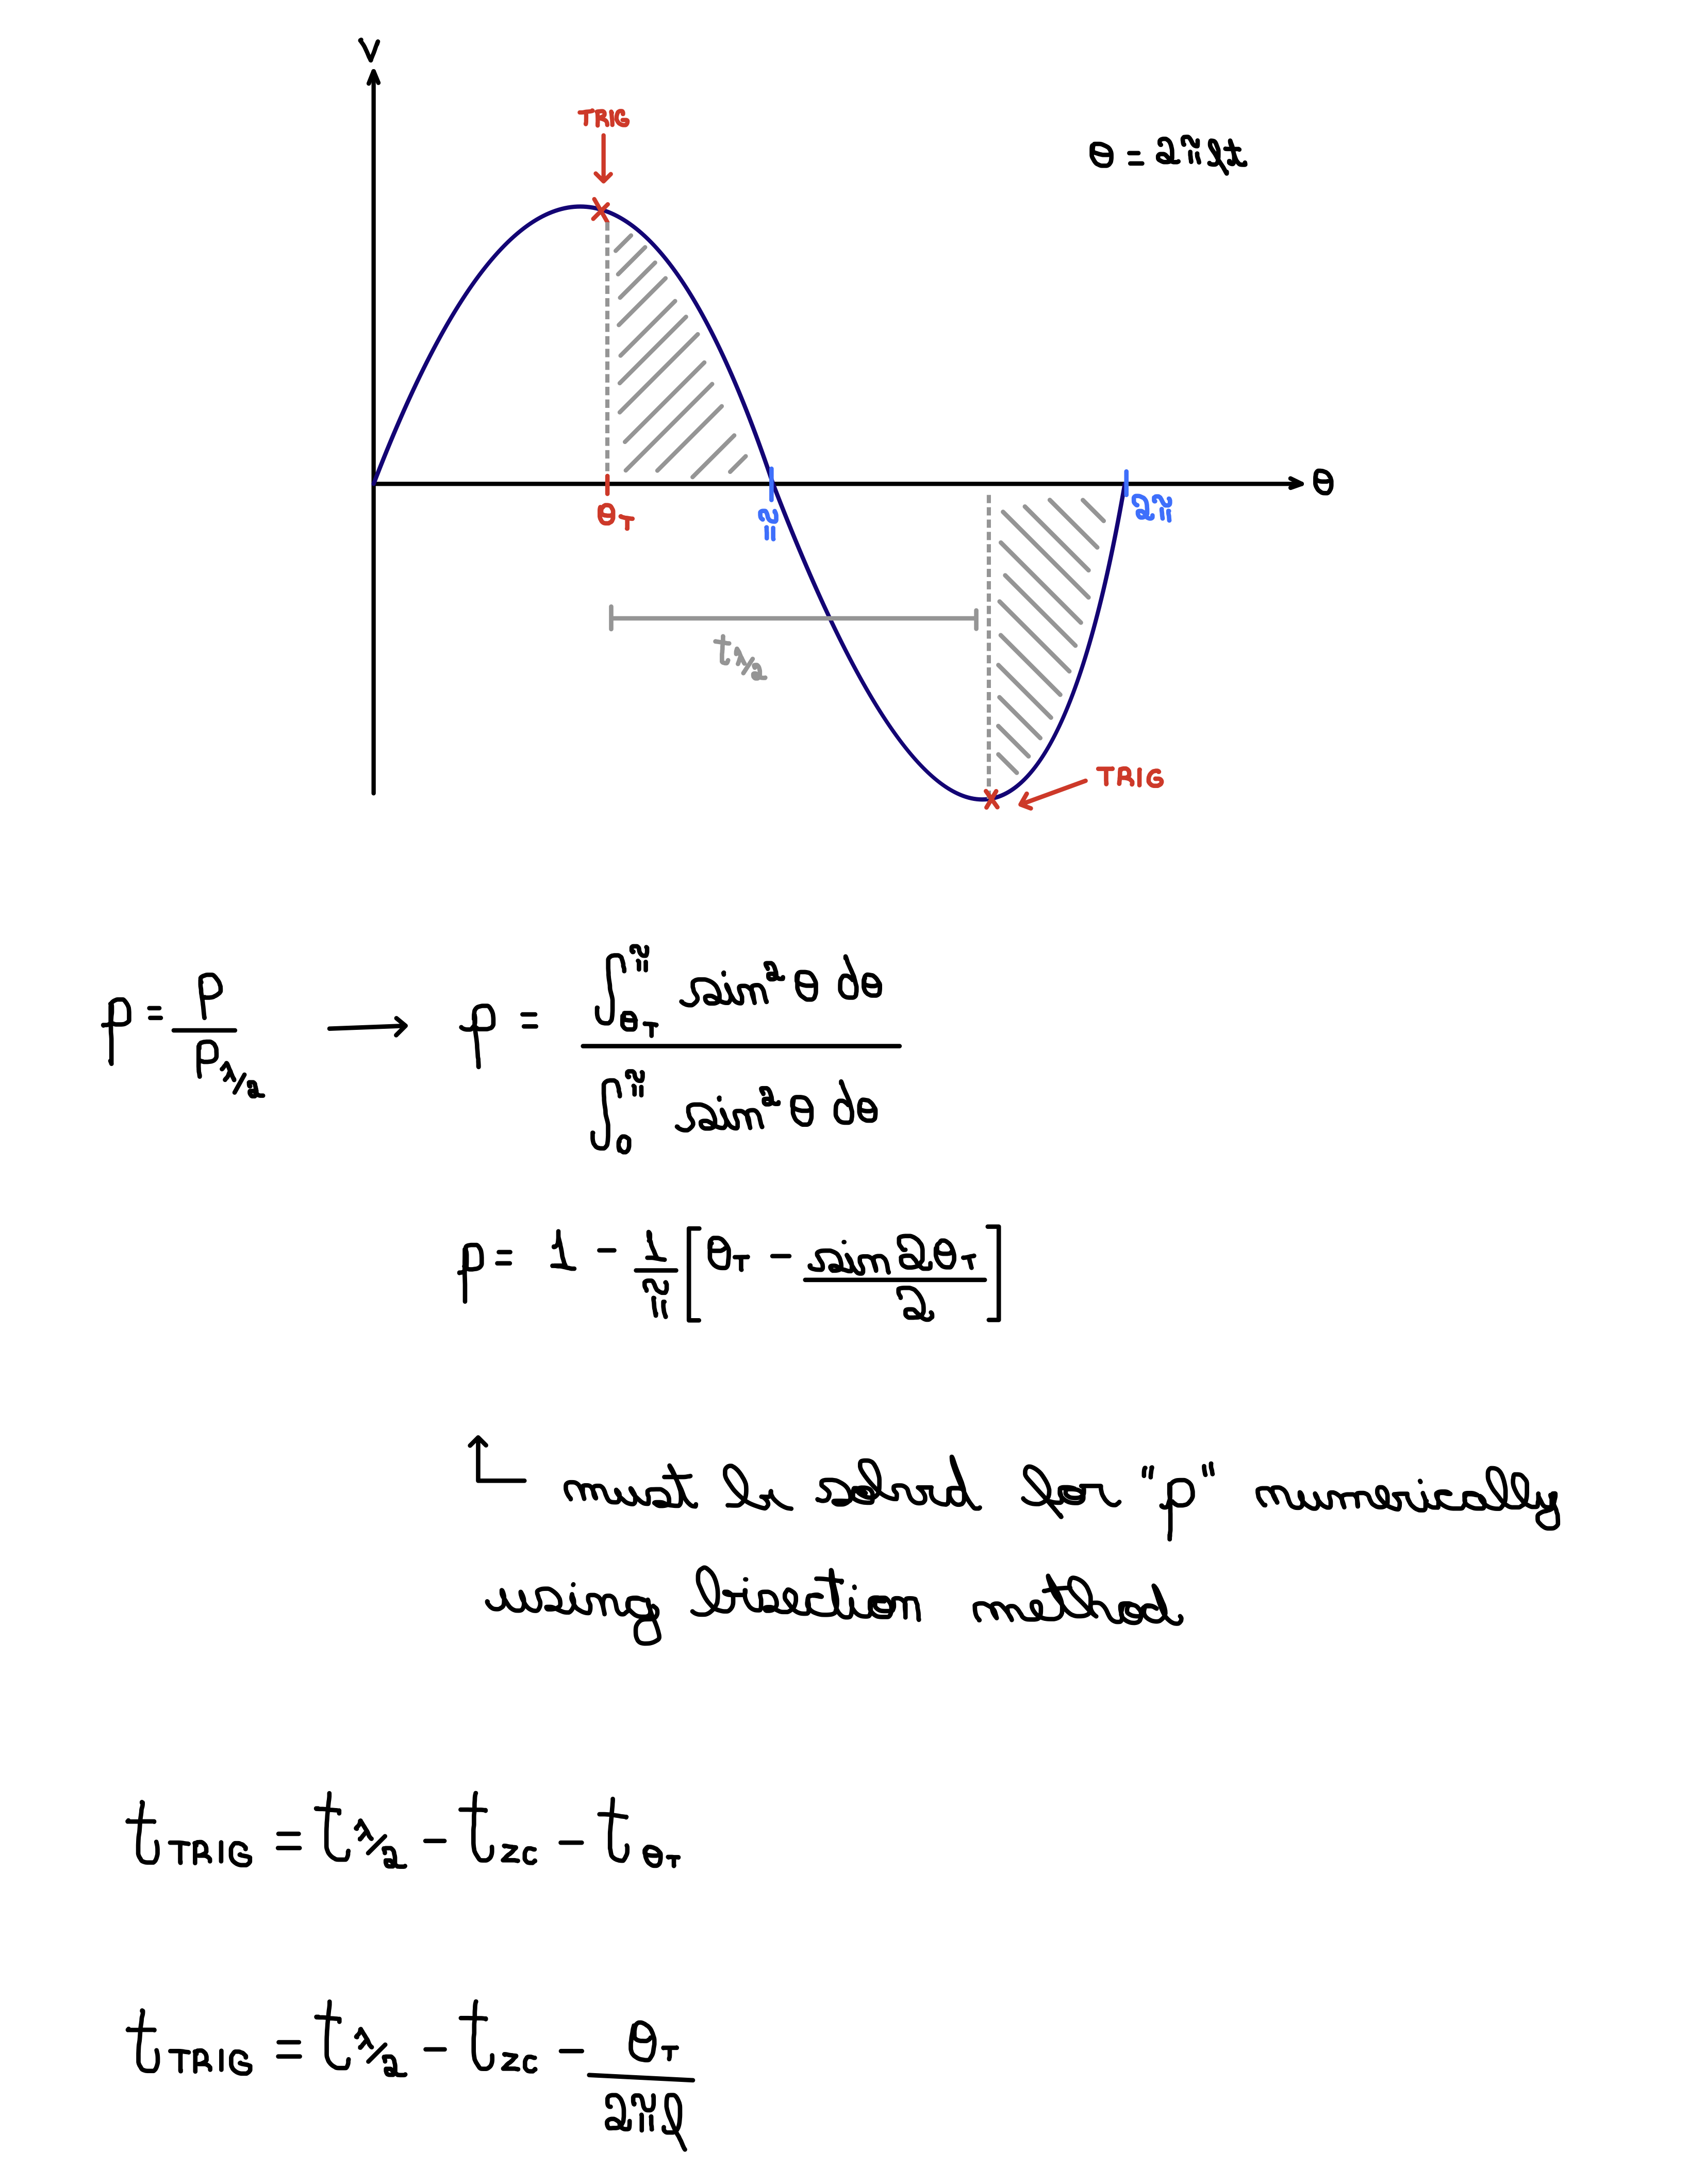 V
TRIG
θ = 2πft
θ
θ_T
π
2π
t_λ/2
TRIG
p = P / P_λ/2 → p = ∫_θ_T^π sin²θ dθ / ∫_0^π sin²θ dθ
p = 1 - 1/π [θ_T - sin 2θ_T / 2]
must be solved for "p" numerically
using bisection method
t_TRIG = t_λ/2 - t_ZC - t_θ_T
t_TRIG = t_λ/2 - t_ZC - θ_T / 2πf